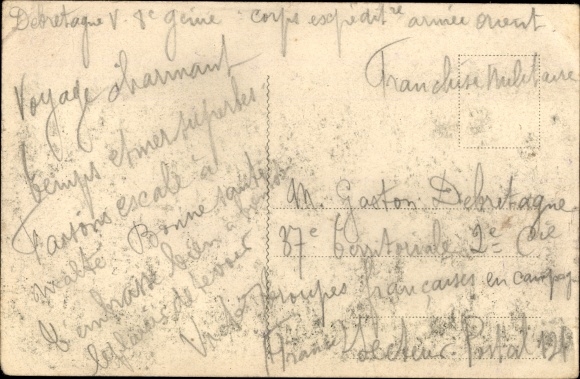 Debretagne V. 8e Génie : corps expéditre armée orient.
Voyage charmant
temps et mer superbes.
Faisons escale à
malte Bonne santé
t'embrasse bien
le plaisir de te voir
Franchise Militaire
M. Gaston Debretagne
37e territoriale 2e Cie
Troupes françaises en campagne
France Secteur Postal 121